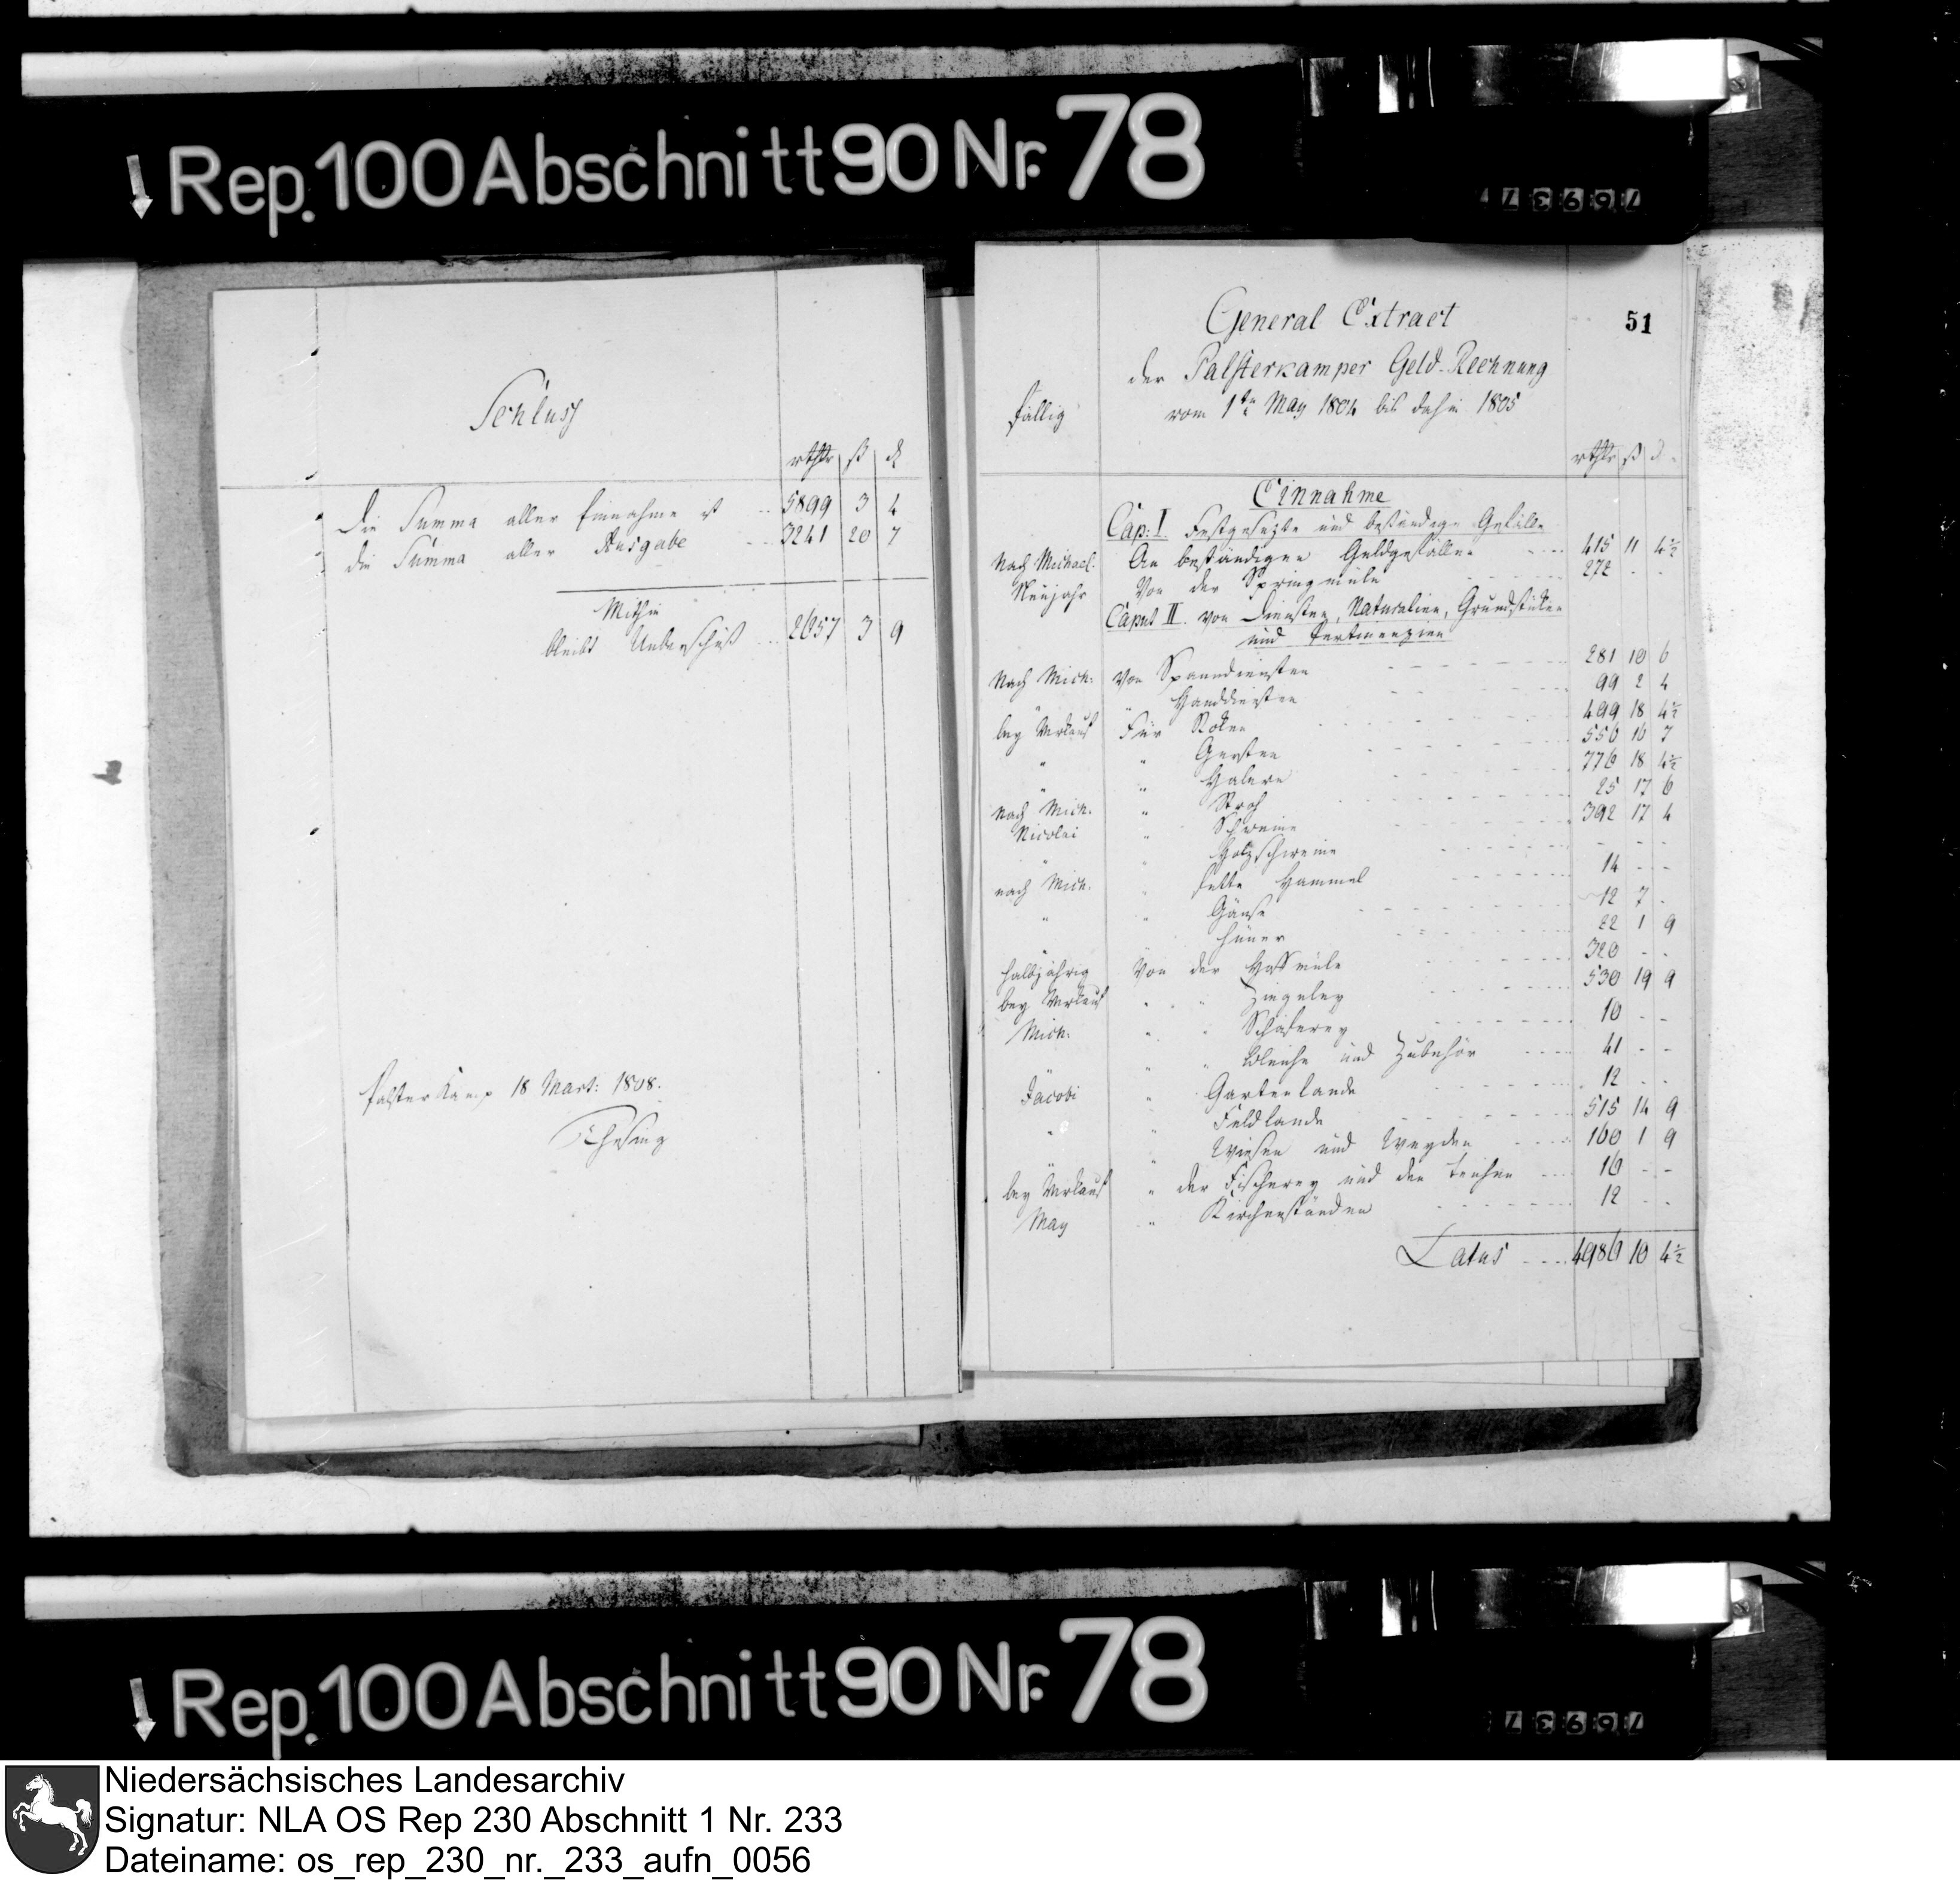 Rep. 100 Abschnitt 90 Nr. 78
76937
Schluss
rthlr ß d
Die Summa aller Einnahme ist 5899 3 4
die Summa aller Ausgabe 3241 20 7
Mithin
bleibt Ueberschuß 2657 3 9
Palsterkamp 18 Mart: 1808.
51
General Extract
der Palsterkamper Geld-Rechnung
fällig vom 1ten May 1804 bis dahin 1805
rthlr ß d
Einnahme
Cap: I. Festgesezte und beständige Gefälle
Nach Michael. An beständigen Geldgefällen 415 11 4½
Neujahr Von der Springmüle 272 - -
Caput II. von Diensten, Naturalien, Grundstüken
und Pertinenzien
Nach Mich: Von Spanndiensten 281 10 6
" " Handdiensten 99 2 4
bey Verkauf Für Roken 499 18 4½
" " Gersten 550 16 7
" " Habern 776 18 4½
Nach Mich. " Stroh 25 17 6
Nicolai " Schweine 392 17 4
" " Holzschweine - - -
nach Mich. " fette Hammel 14 - -
" " Gänse 12 7 -
" " Hüner 22 1 9
halbjährig Von der Müle 320 - -
bey Verkauf " " Ziegeley 530 19 9
Mich. " " Schäferey 10 - -
" " " Bleiche und Zubehör 41 - -
Jacobi " Gartenlande 12 - -
" " Feldlande 515 14 9
" " Wiesen und Weyden 160 1 9
bey Verkauf " der Fischerey und den Teichen 16 - -
May " Kirchenständen 12 - -
Latus 4986 10 4½
Rep. 100 Abschnitt 90 Nr. 78
76937
Niedersächsisches Landesarchiv
Signatur: NLA OS Rep 230 Abschnitt 1 Nr. 233
Dateiname: os_rep_230_nr._233_aufn_0056